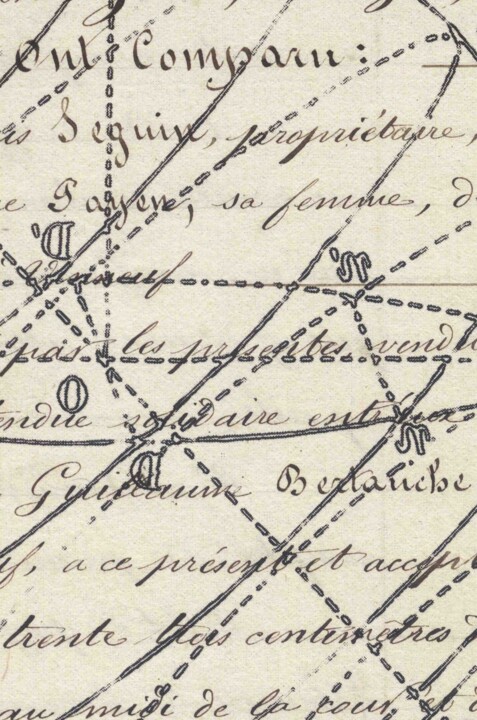 Ont Comparu :
Seguin, propriétaire,
Payen, sa femme, d
D' N'
par les présentes vendu
O
endue solidaire entr'eux
D N
Guillaume Berlariche
f, a ce présent et accept
trente trois centimètres d
au midi de la cour, et d